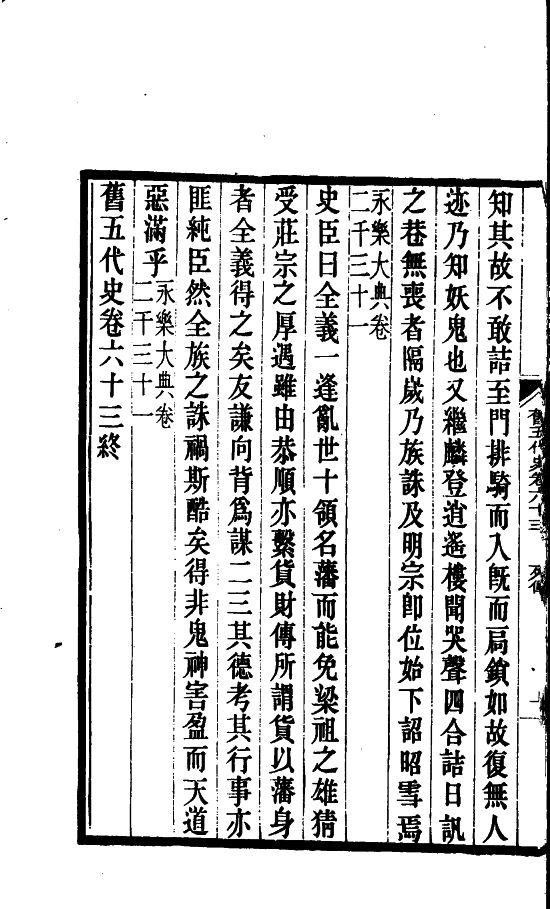 舊五代史卷六十三 列傳
知其故不敢詰至門排騎而入旣而扃鎖如故復無人
迹乃知妖鬼也又繼麟登逍遙樓聞哭聲四合詰日訊
之巷無喪者隔歲乃族誅及明宗卽位始下詔昭雪焉
永樂大典卷
二千三十一
史臣曰全義一逢亂世十領名藩而能免梁祖之雄猜
受莊宗之厚遇雖由恭順亦繫貨財傳所謂貨以藩身
者全義得之矣友謙向背爲謀二三其德考其行事亦
匪純臣然全族之誅禍斯酷矣得非鬼神害盈而天道
惡滿乎永樂大典卷
二千三十一
舊五代史卷六十三終